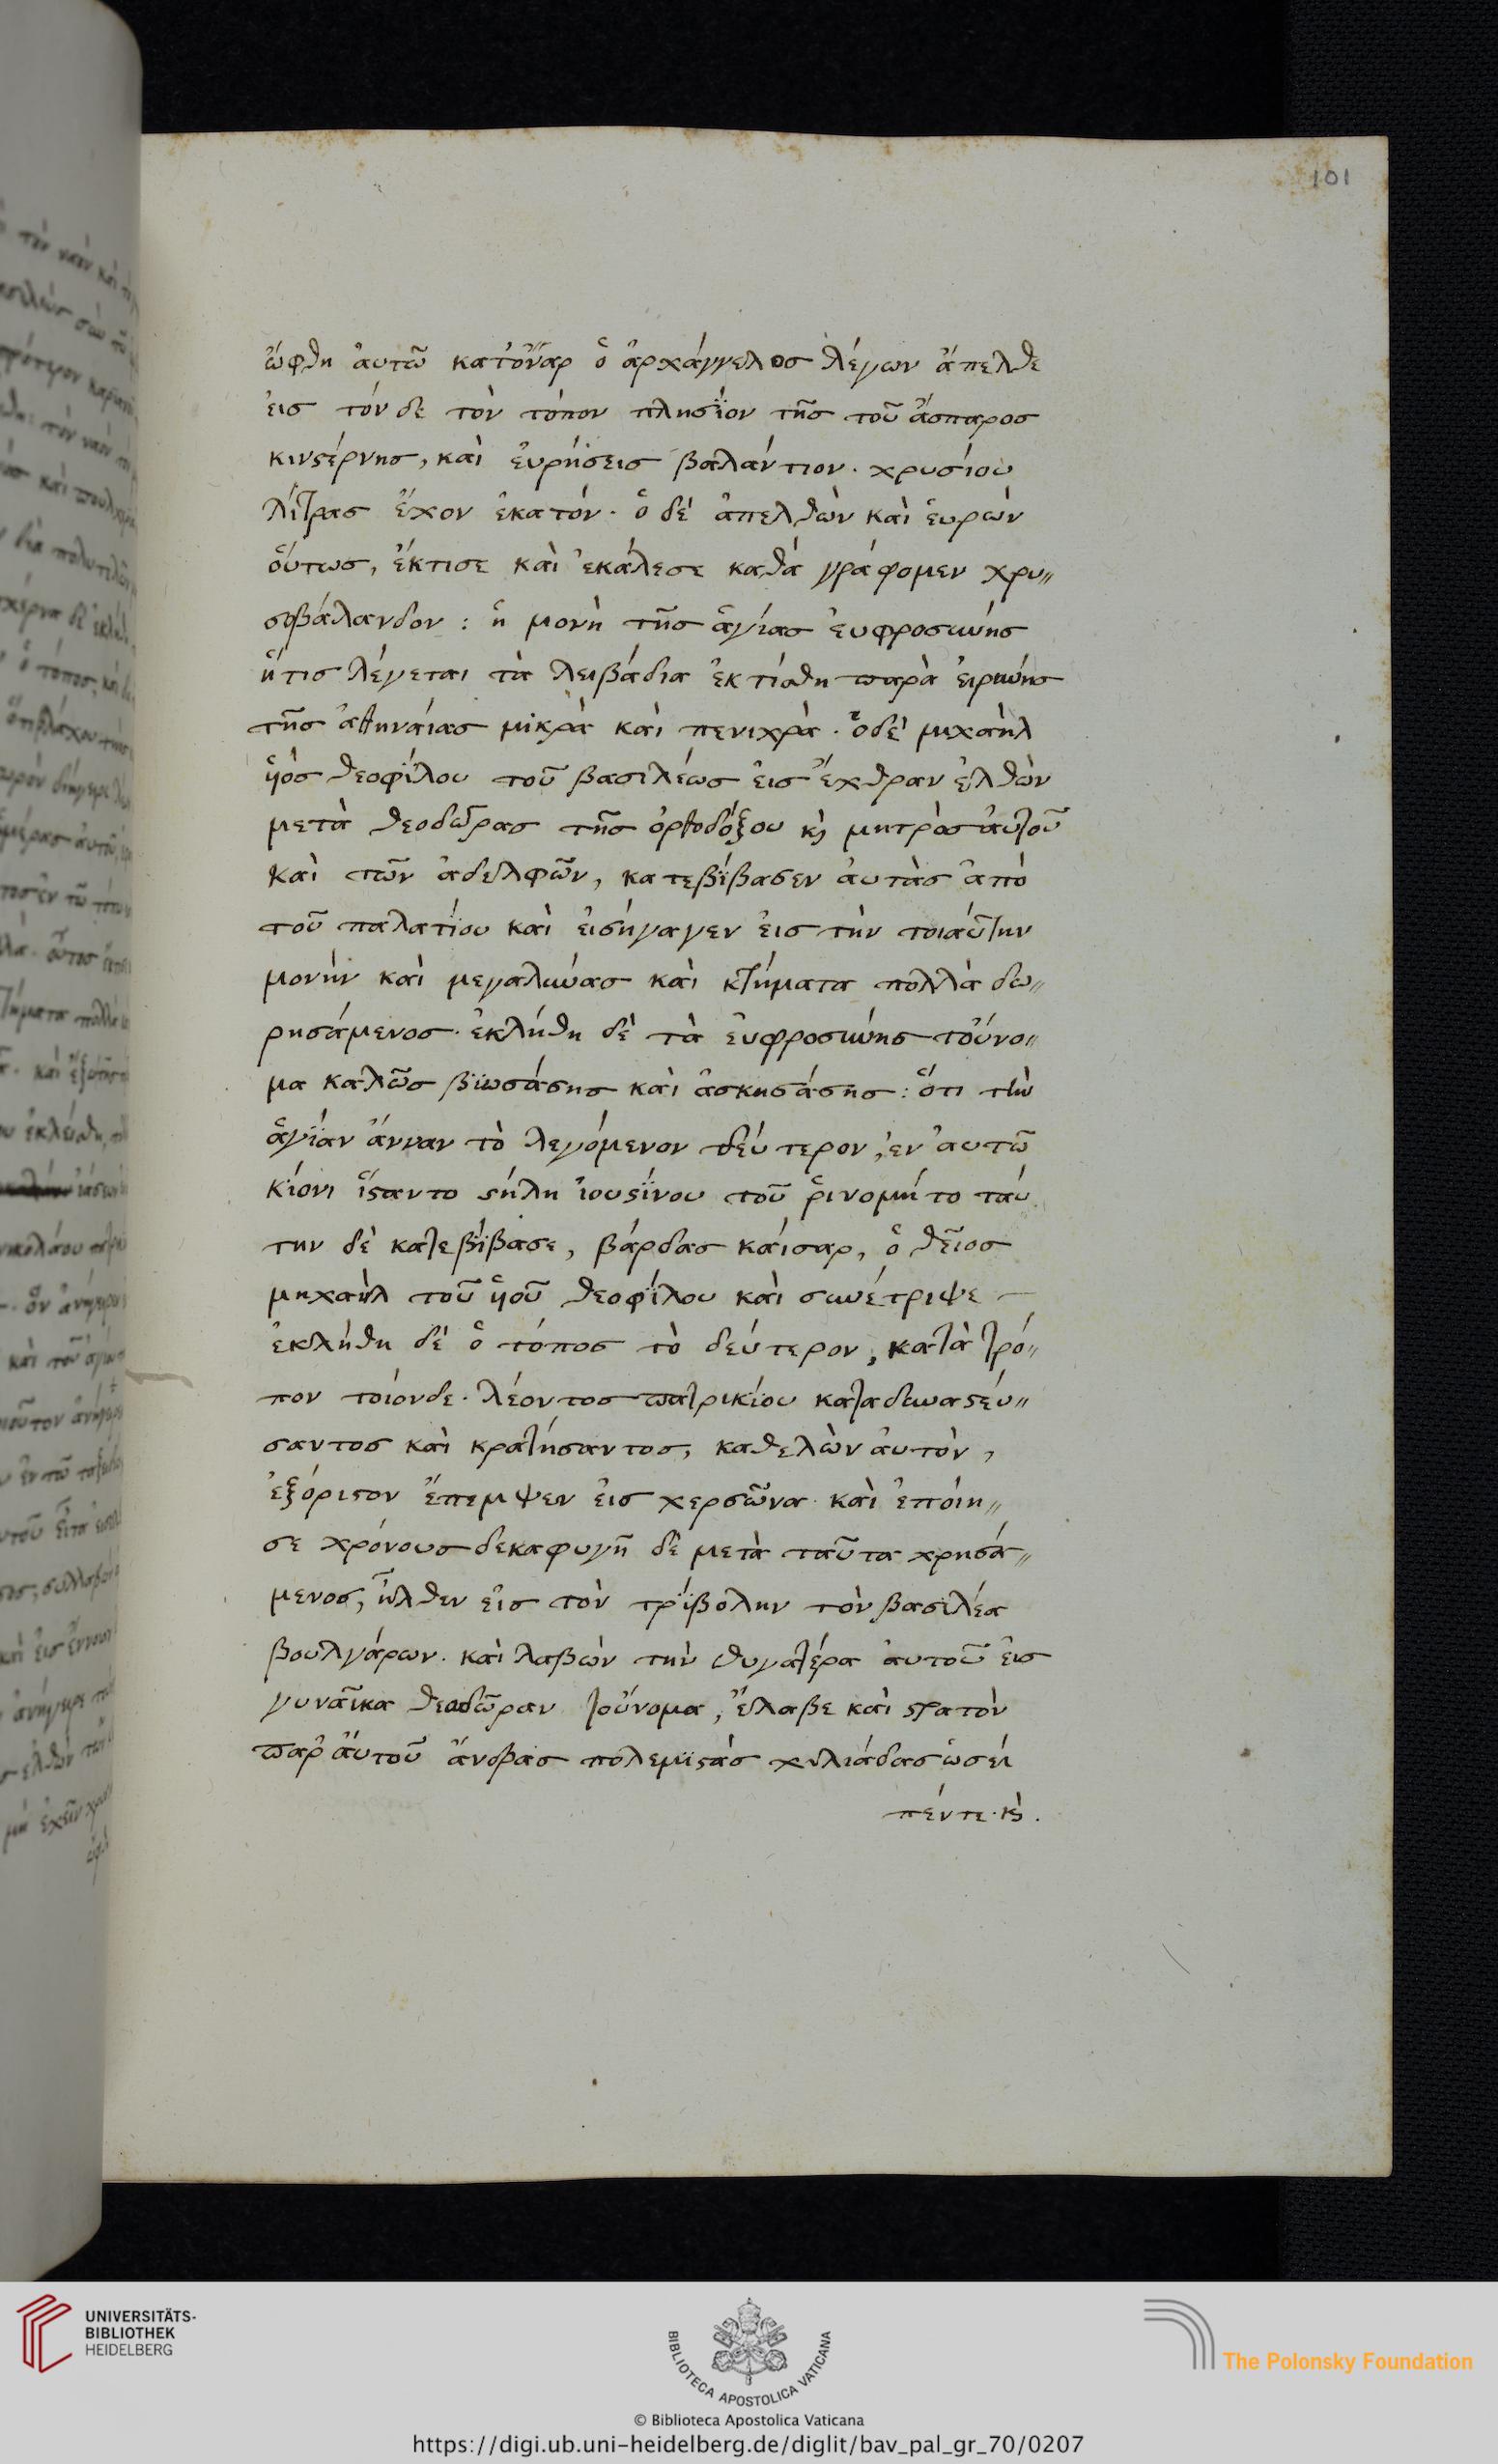 101
ὤφθη ἀυτῶ κατ᾽ὄναρ ὁ ἀρχάγγελος λέγων ἄπελθε
ἐις τόν δε τὸν τόπον πλησΐον τῆς τοῦ ἄσπαρος
κινϛέρνης, καὶ ἑυρήσεις βαλάντιον. χρυσίου
λίτρας ἔχον ἑκατόν. ὁ δὲ ἀπελθὼν καὶ ἑυρὼν
ὅυτως, ἔκτισε καὶ ἐκάλεσε καθὰ γράφομεν χρυ〃
σοβάλανδον: ἡ μονὴ τῆς ἁγίας ἐυφροσύνης
ἥτις λέγεται τὰ λειβάδια ἐκτίσθη παρὰ ἐιρήνης
τῆς ἀθηνάιας μϊκρὰ καὶ πενιχρὰ. ὁ δὲ μιχαὴλ
ὑϊὸς θεοφΐλου τοῦ βασιλέως ἐις ἔχθραν ἐλθὼν
μετὰ θεοδώρας τῆς ὀρθοδόξου κ̀ μητρὸς ἀυτοῦ
καὶ τῶν ἀδελφῶν, κατεβΐβασεν ἀυτὰς ἀπὸ
τοῦ παλατΐου καὶ ἐισήγαγεν ἐις τὴν τοιάυτην
μονὴν καὶ μεγαλύνας καὶ κτήματα πολλὰ δω〃
ρησάμενος. ἐκλήθη δὲ τὰ ἐυφροσύνης τοὔνο〃
μα καλῶς βϊωσάσης καὶ ἀσκησάσης: ὅτι τὴν
ἁγΐαν ἄνναν τὸ λεγόμενον δεύτερον, ἐν ἀυτῶ
κΐονι ἵϛαντο ϛήλη ἰουϛΐνου τοῦ ῥινομήτο τάυ
την δὲ κατεβΐβασε, βάρδας κάισαρ, ὁ θεῖος
μηχαὴλ τοῦ ὑϊοῦ θεοφΐλου καὶ συνέτριψε
ἐκλήθη δὲ ὁ τόπος τὸ δεύτερον, κατὰ τρό〃
πον τοίονδε. λέοντος πατρικΐου καταδυναϛέυ〃
σαντος καὶ κρατήσαντος, καθελὼν ἀυτὸν,
ἐξόριϛον ἔπεμψεν ἐις χερσῶνα. καὶ ἐπόιη〃
σε χρόνους δεκαφυγῆ δὲ μετὰ ταῦτα χρησά〃
μενος, ἦλθεν ἐις τὸν τρΐβολην τὸν βασϊλέα
βουλγάρων. καὶ λαβὼν τὴν θυγατέρα ἀυτοῦ ἐις
γυνᾶικα θεοδῶραν τοὔνομα, ἔλαβε καὶ ϛρατὸν
παρ᾽ ἀυτοῦ ἄνδρας πολεμϊϛὰς χιλιάδας ὡσεὶ
πέντε. κ̀.
UNIVERSITÄTS-
BIBLIOTHEK
HEIDELBERG
BIBLIOTECA APOSTOLICA VATICANA
The Polonsky Foundation
© Biblioteca Apostolica Vaticana
https://digi.ub.uni-heidelberg.de/diglit/bav_pal_gr_70/0207